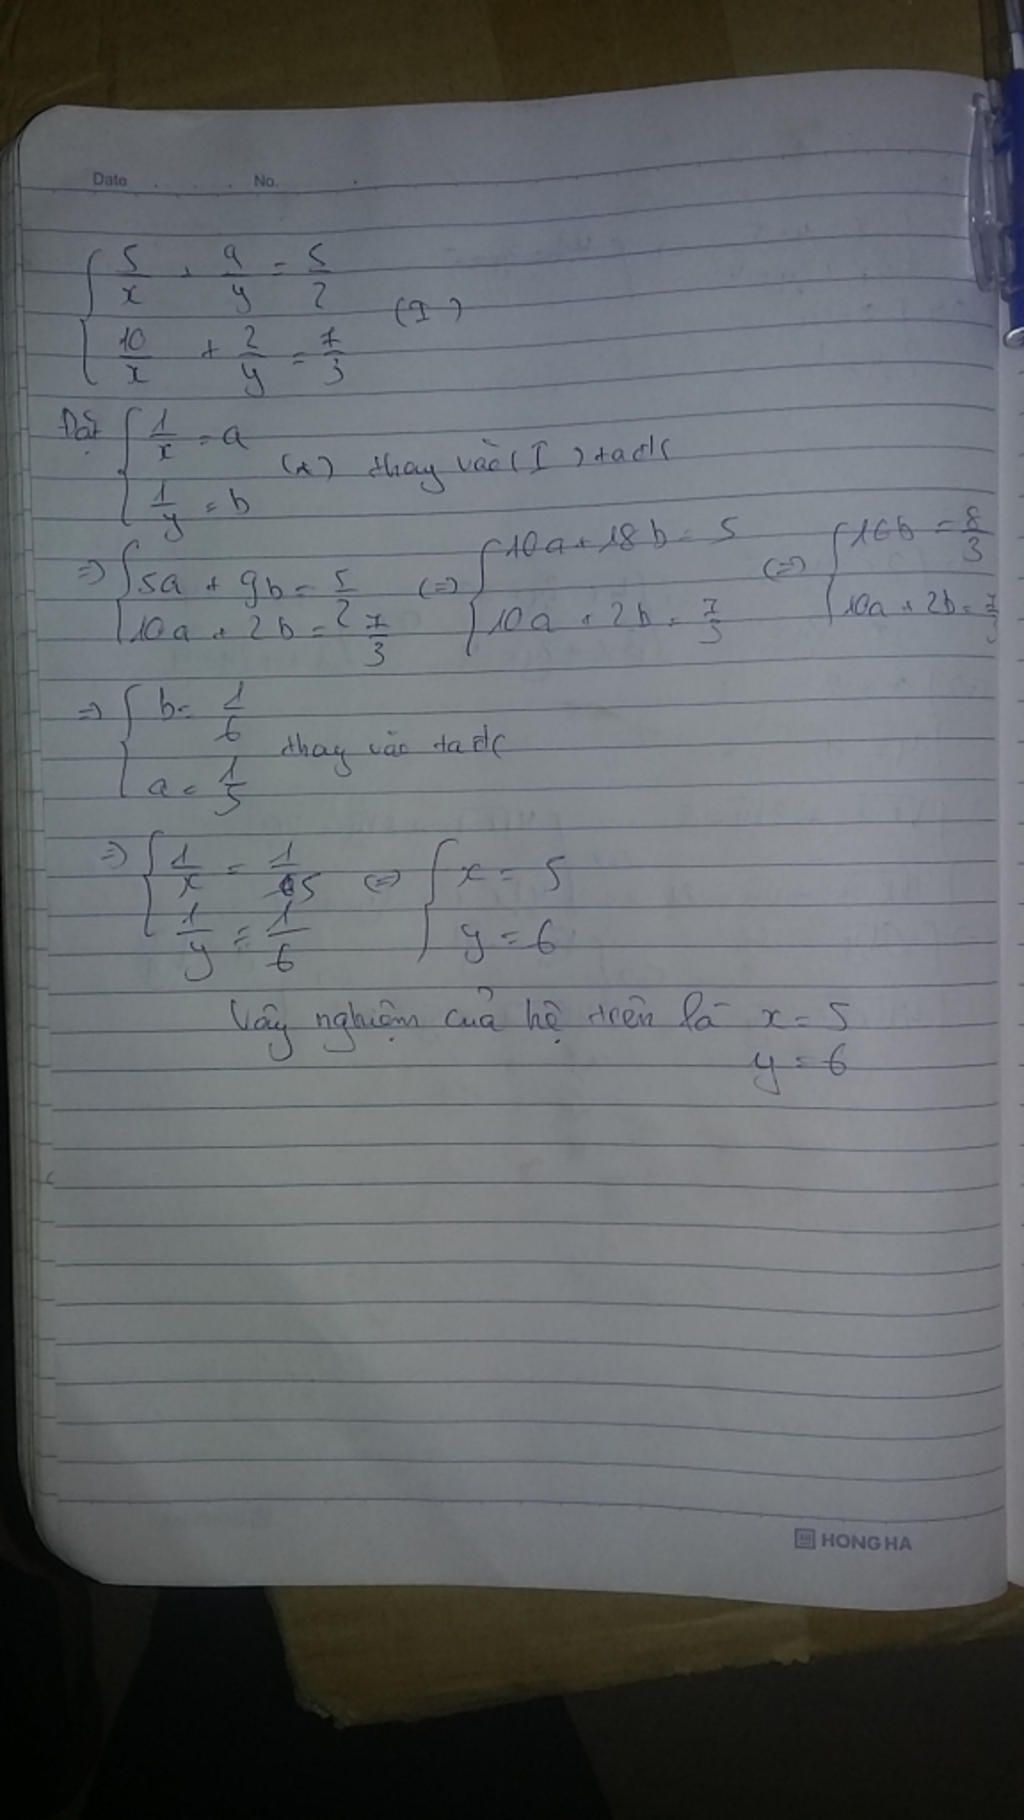 Date No.
{ 5/x + 9/y = 5/2
{ 10/x + 2/y = 7/3 (I)
Đặt { 1/x = a
{ 1/y = b (*) thay vào (I) ta đc
=> { 5a + 9b = 5/2 (=) { 10a + 18b = 5 (=) { 16b = 8/3
{ 10a + 2b = 7/3 { 10a + 2b = 7/3 { 10a + 2b = 7/3
=> { b = 1/6
{ a = 1/5 thay vào ta đc
=> { 1/x = 1/5 (=) { x = 5
{ 1/y = 1/6 { y = 6
Vậy nghiệm của hệ trên là x = 5
y = 6
HONG HA